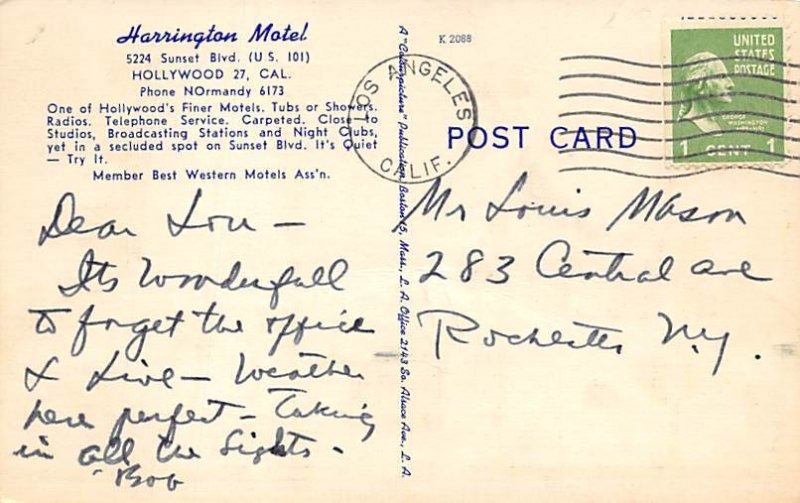 Harrington Motel
5224 Sunset Blvd. (U.S. 101)
HOLLYWOOD 27, CAL.
Phone NOrmandy 6173
One of Hollywood's Finer Motels. Tubs or Showers.
Radios. Telephone Service. Carpeted. Close to
Studios, Broadcasting Stations and Night Clubs,
yet in a secluded spot on Sunset Blvd. It's Quiet
— Try It.
Member Best Western Motels Ass'n.
Dear Lou —
Its Wonderfull
to forget the office
& Live — Weather
here perfect — Taking
in all the Sights -
- Bob
A "Colourpicture" Publication, Boston 15, Mass., L. A. Office 2143 So. Alsace Ave., L. A.
K 2088
LOS ANGELES
CALIF.
POST CARD
UNITED
STATES
POSTAGE
GEORGE
WASHINGTON
1 CENT 1
Mr Louis Mason
283 Central ave
Rochester N.y.